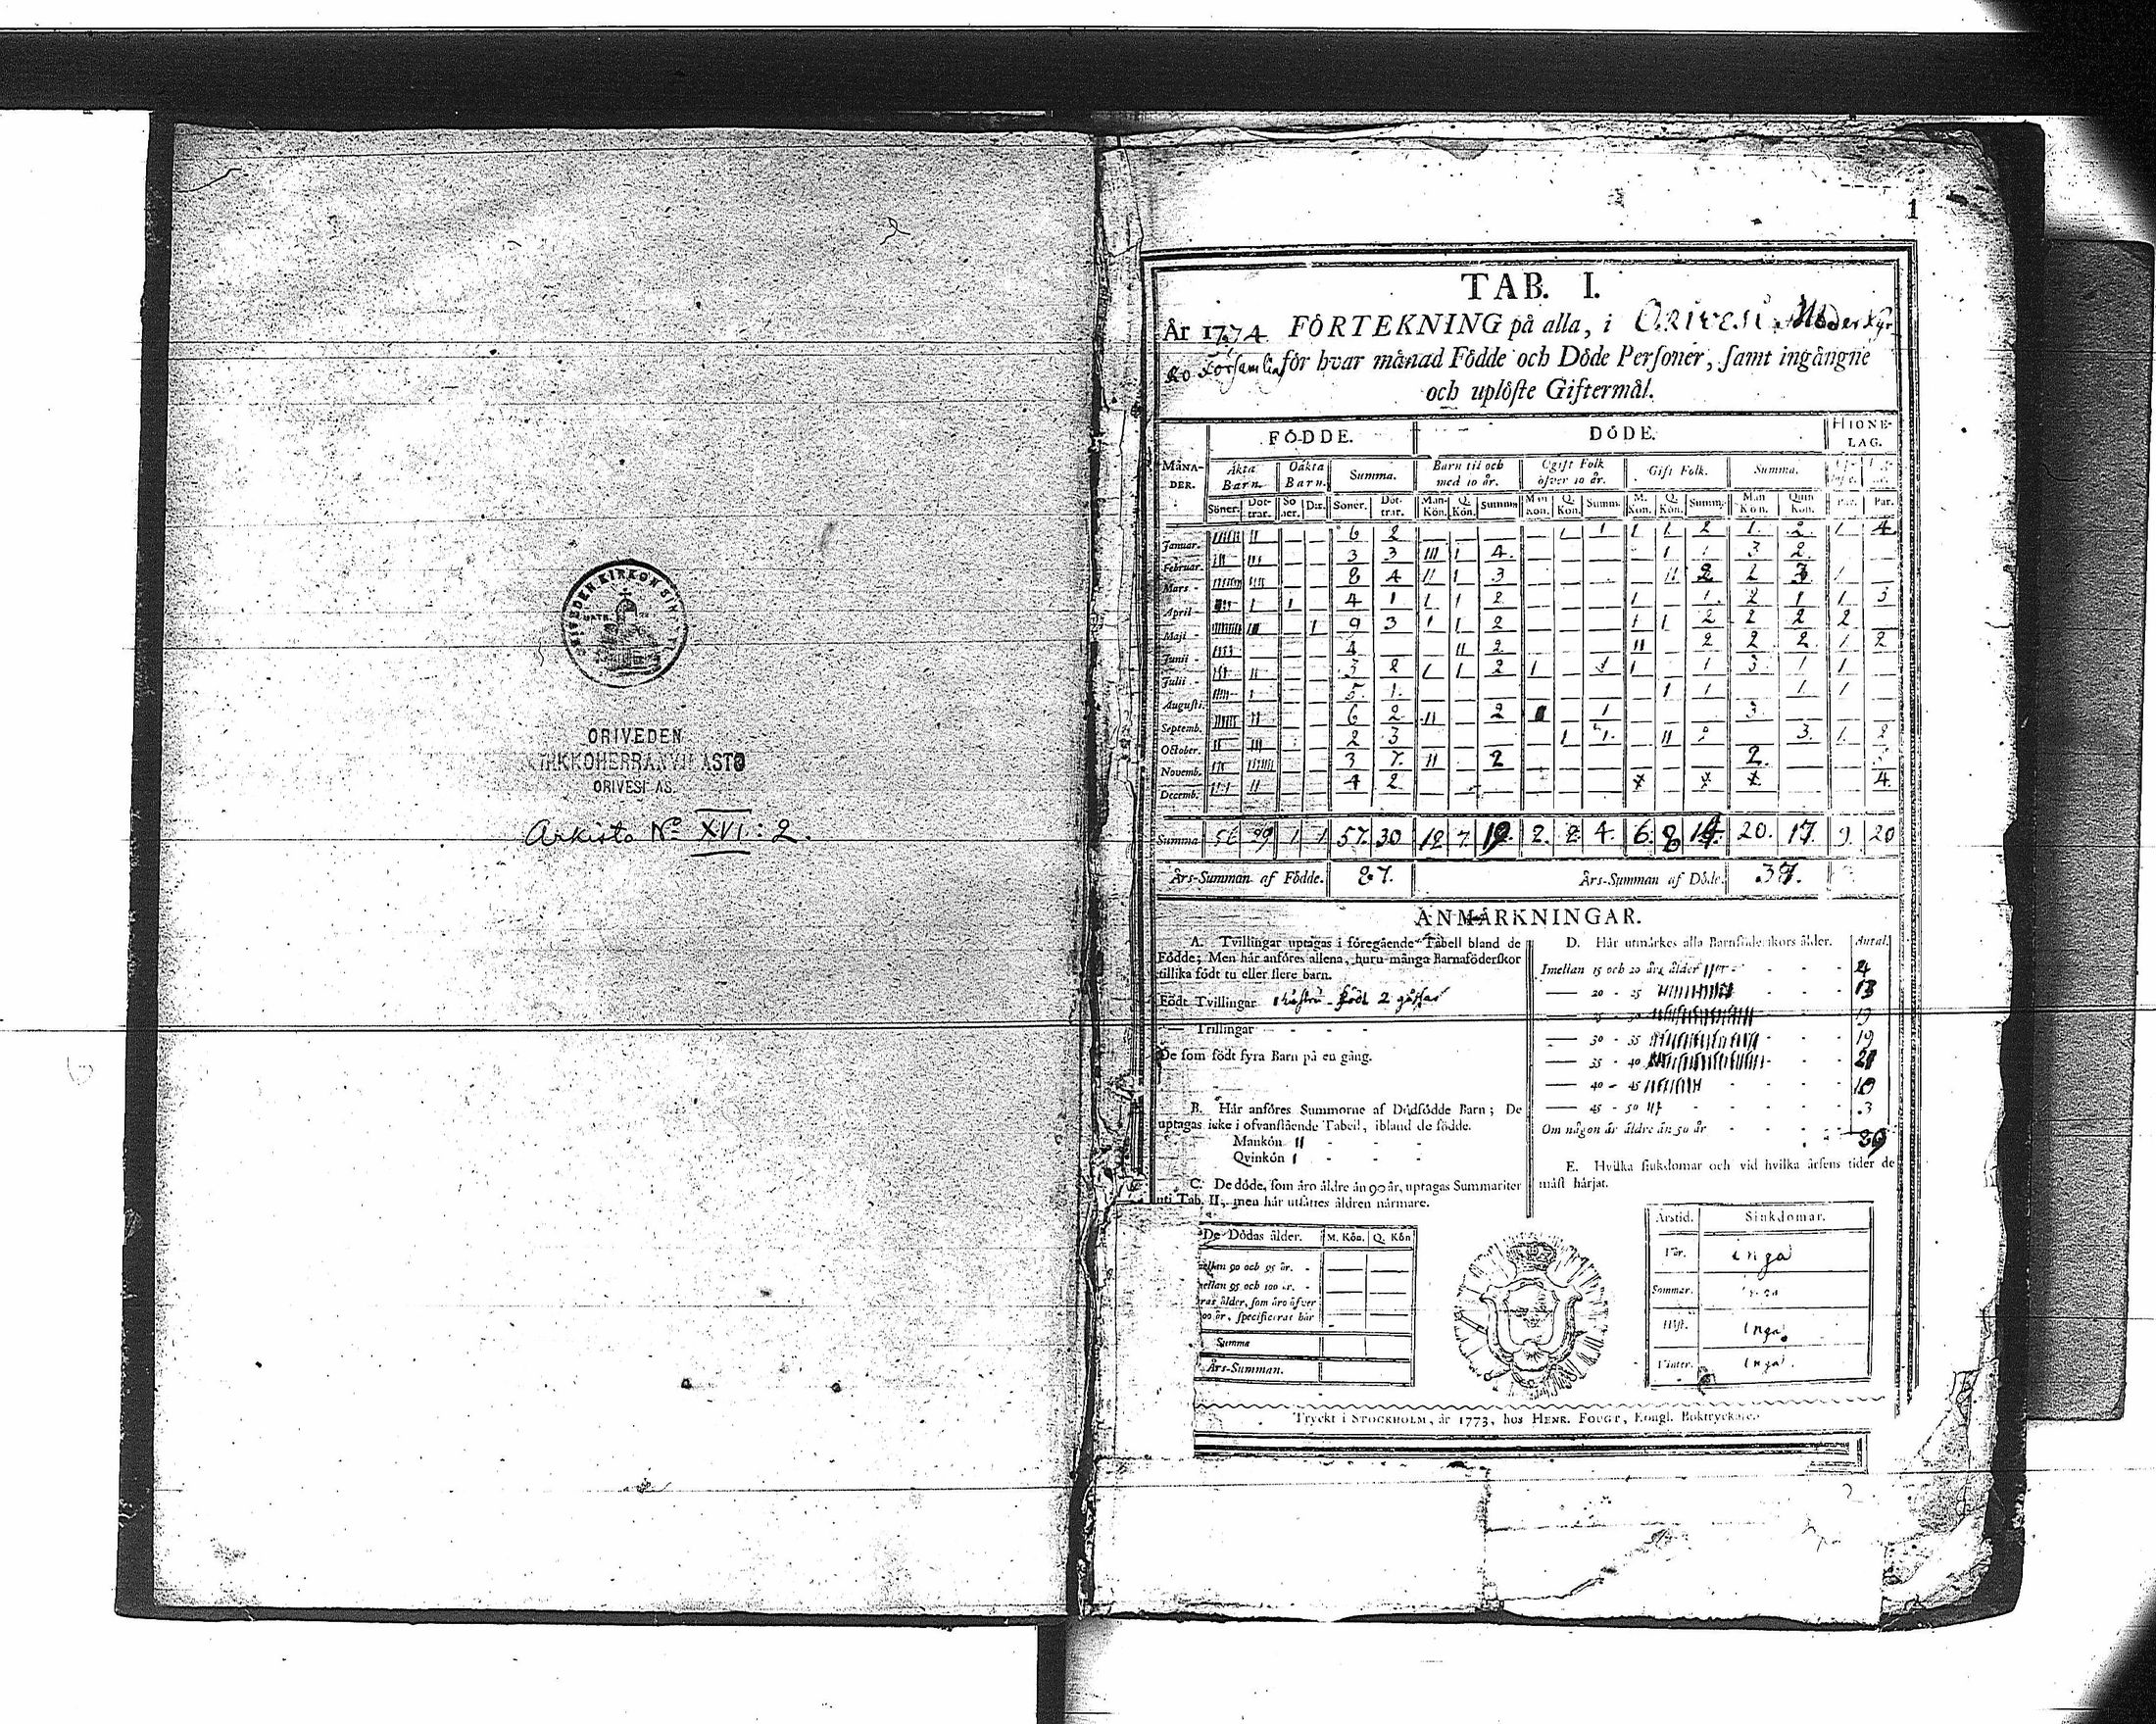 ORIVEDEN KIRKON
ORIVEDEN
KIRKKOHERRANVIRASTO
ORIVESI AS.
Arkisto No XVI: 2.
1
TAB. I.
År 1774 FÖRTEKNING på alla, i Orivesi Moder Kyr
ko Församlin för hvar månad Födde och Döde Personer, samt ingångne
och uplöste Giftermål.
FÖDDE. DÖDE. HIONE-LAG.
MÅNA-DER. Äkta Barn. Oäkta Barn. Summa. Barn til och med 10 år. Ogift Folk öfver 10 år. Gift Folk. Summa.
Söner. Döt-trar. Sö ner. Dr. Söner. Döt-trar. Man-Kön. Q. Kön. Summa Man Kön. Q. Kön. Summ. M. Kön. Q. Kön. Summ. Man Kön. Quin Kön. Par. Par.
Januar. IIIIII II — — 6 2 — — — — 1 1 1 1 2 1. 2. 1 4
Februar. III III — — 3 3 III 1 4. — — — — 1 1 3 2.
Mars - IIIIIIII IIII — — 8 4 II 1 3 — — — — II 2 2 3 1 —
April 1 1 4 1 1 1 2 — — — 1 — 1. 2 1 1 3
Maji - IIIIIIIII III — 1 9 3 1 1 2 — — — 1 1 2 2 2 2
Junii - IIII — — — 4 — — II 2 — — — II — 2 2 2 1 2
Julii - III II — — 3 2 1 1 2 1 — 1 1 — 1 3 1 1
Augusti. IIIII 1 — — 5 1. — — — — — — — 1 1 — 1 1
Septemb. IIIIII II — — 6 2 II — 2 — 1 — — — 3
October. II III — 2 3 — — — — 1 1. — II 2 — 3. 1. 2
Novemb. III IIIIIII — — 3 7. II — 2 — — — — — — 2.
Decemb. IIII II — — 4 2 — — — — — — 4.
Summa 56 29 1 1 57. 30 12 7. 19. 2. 2. 4. 6. 8 14. 20. 17. 9. 20
Års-Summan af Födde. 87. Års-Summan af Döde. 37.
ANMÄRKNINGAR.
A. Tvillingar uptagas i föregående Tabell bland de
Födde; Men här anföres allena, huru många Barnaföderskor
tillika födt tu eller flere barn.
Födt Tvillingar 1 hustru - födt 2 gåssar
— Trillingar - - -
De som födt fyra Barn på en gång.
B. Här anföres Summorne af Dödfödde Barn; De
uptagas icke i ofvanstående Tabell, ibland de födde.
Mankön II - - -
Qvinkön I - - -
C. De döde, som äro äldre än 90 år, uptagas Summariter
uti Tab. II; men här utsättes åldren närmare.
De Dödas ålder. M. Kön. Q. Kön
ellan 90 och 95 år. -
ellan 95 och 100 år. -
ras ålder, som äro öfver
00 år, specificeras här
Summa
Års-Summan.
D. Här utmärkes alla Barnföderskors ålder. Antal.
Imellan 15 och 20 års ålder IIII - - - 4
— 20 - 25 - - - 13
— 25 - 30 - - - 19
— 30 - 35 - - - 19
— 35 - 40 - - - 21
— 40 - 45 - - - 10
— 45 - 50 III - - - 3
Om någon är äldre än 50 år - - -
89
E. Hvilka siukdomar och vid hvilka årsens tider de
mäst härjat.
Årstid. Siukdomar.
Vår. inga
Sommar. inga
Höst. inga
Vinter. inga.
Tryckt i STOCKHOLM, år 1773, hos HENR. FOUGT, Kongl. Boktryckare.